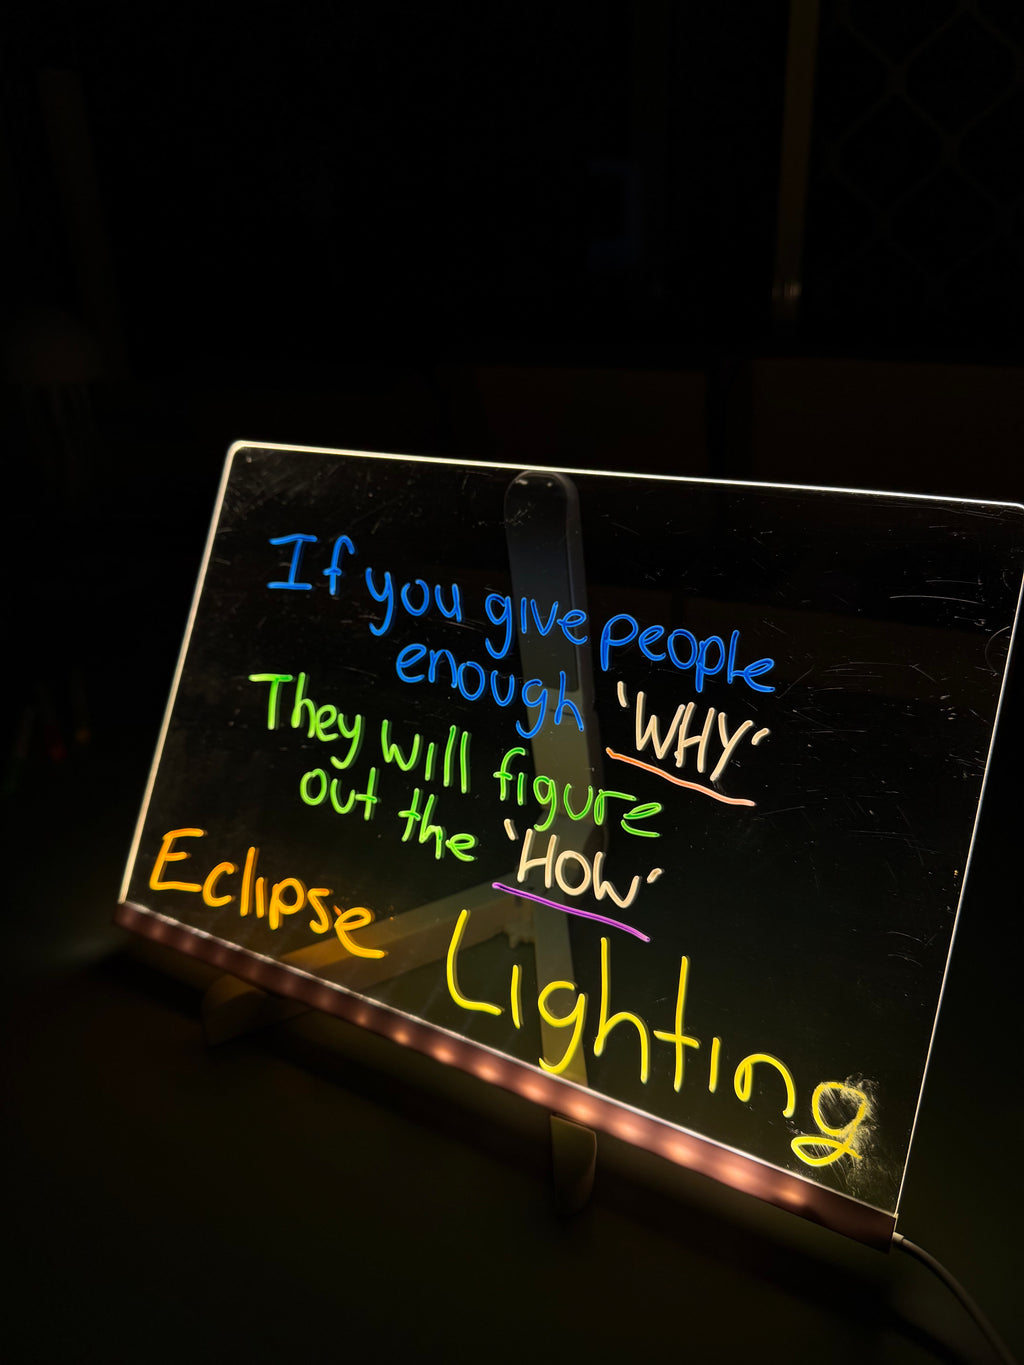 If you give people
enough 'WHY'
They will figure
out the 'HOW'
Eclipse Lighting